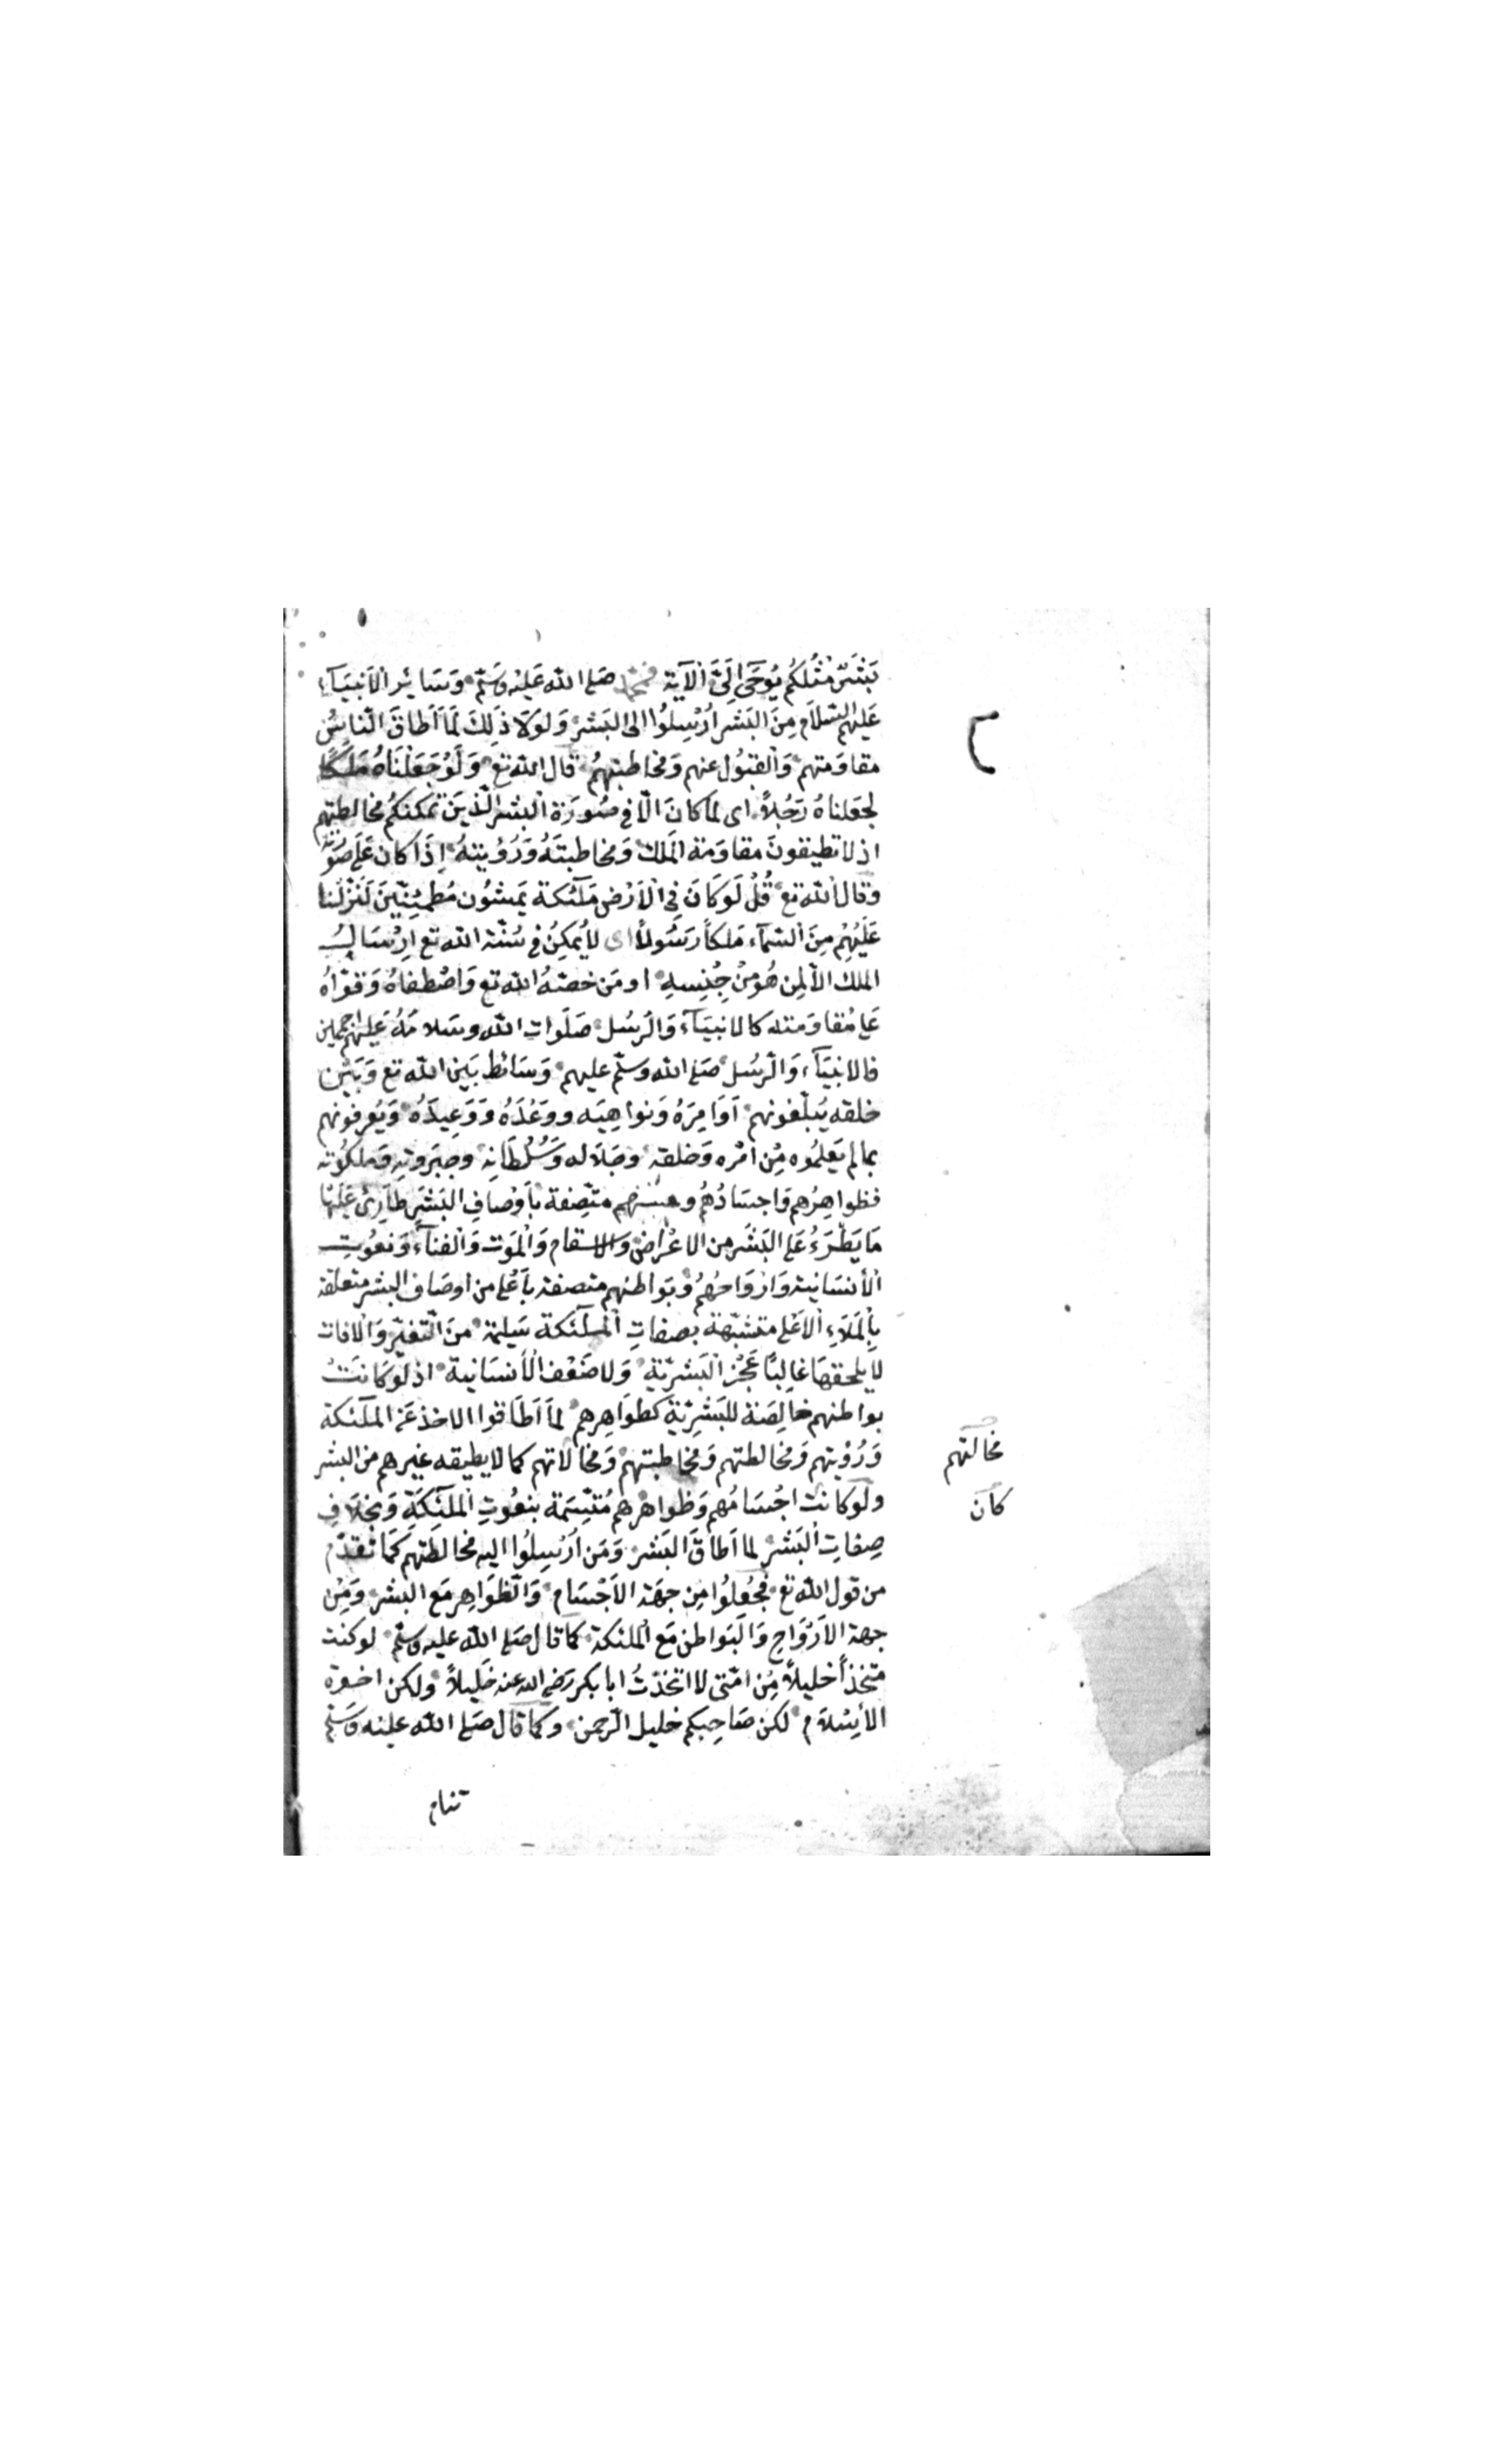 بَشَرٌ مِثْلُكُمْ يُوحَى إِلَىَّ الْآيَةَ فمحمد صَلى اللّه عَلَيْه وَسَلّم وَسَائر الاَنبيَآءِ
عَلَيهم السّلاَم مِنَ البَشر اُرْسِلُوا الى البَشر وَلَولا ذٰلِكَ لَمَا اَطَاقَ النّاسُ
مقاوَمتهم وَالقبُول عنهم وَمخاطبتهُم قالَ اللّه تع وَلَوْ جَعَلْنَاهُ مَلَكًا
لجعَلناهُ رَجُلاً اى لما كانَ الّا فى صُورَة البشر الّذينَ تمكنكم مخالطتهم
اذ لا تطيقونَ مقاوَمَة المَلك وَمخاطبتَهُ وَرُؤيتهُ اِذَا كان عَلَى صُورَته
وقال اللّه تع قُلْ لَوْ كَانَ فِى الْاَرْضِ مَلَئكة يَمشُون مُطمَئِنّينَ لَنَزّلْنا
عَلَيْهِمْ مِنَ السّمآء مَلكاً رَسُولاً اى لا يُمكِنُ فى سُنّة اللّه تع اِرْسَالُ
الملك الّا لمِن هُوَ مِنْ جِنْسِهِ او مَن خصّهُ اللّه تع وَاصْطفاهُ وَقوّاهُ
عَلى مُقاوَمته كالانبيَآء وَالرّسُل صَلَوات اللّه وسَلامهُ عَلَيهم اجمعين
فالانبيَآء وَالرّسُل صَلى اللّه وَسَلّم عليهم وَسَائط بَين اللّه تع وَبَيْنَ
خلقه يُبلّغونهم اَوَامِرَهُ وَنواهِيَه ووَعْدَهُ وَوَعِيدَهُ وَيُعرّفونهم
بما لم يَعلمُوه مِن امْره وَخلقه وجَلَاله وَسُلْطَانِه وجبَروته وَملكُوته
فظواهِرُهم وَاجسَادُهُم وبنيتهم متّصِفة بِاَوْصاف البَشَر طَارِئ عَلَيْهَا
مَا يَطْرَءُ عَلى البَشَر من الاعْرَاض وَالاسقام وَالْمَوت وَالفنآء وَنعُوت
الْاِنسَانية وَارْوَاحُهُمْ وَبَواطنهم متصفة باَعْلى من اوصَاف البشر متعلّقة
بِالْمَلَاءِ الاَعْلى متشبّهة بصفاتِ الْمَلَئكة سَليمَة مِنَ التّغيّر وَالآفات
لا يلحقهَا غَالِبًا عَجْز الْبَشَرِيّة وَلا ضَعْف الْاِنسَانية اذ لو كَانَتْ
بواطنهم خالِصَة للبَشَرِيّة كظواهِرِهم لَمَا اَطَاقوا الاخذ عَنِ المَلَئكة
وَرُؤيتهم وَمخالطتهم وَمخاطبتهم وَمخالّاتهم كما لا يطيقه غيرهم من البشر
ولو كانَت اجْسَامُهم وَظواهرهم مُتّسِمَة بنعُوتِ الْملَئِكَةِ وَبخلَافِ
صِفاتِ الْبَشر لما اَطاقَ البَشر وَمَن اُرْسِلُوا اليه مخالطتهم كَمَا تقدّم
من قول اللّه تع فجُعِلُوا مِن جهَة الاَجْسَام وَالظوَاهِر مَع البشر وَمِنْ
جهة الاَرْوَاح وَالبَواطن مَع المَلئكة كما قالَ صَلى اللّه عليه وَسَلّم لو كنت
متّخذاً خليلاً مِن امّتى لاتّخذتُ ابا بكر رَضى اللّه عنه خَليلاً ولكن اخوة
الاِسْلَام لكن صَاحِبكم خليل الرّحمن وكما قال صَلى اللّه عليه وَسَلّم
مخالتهم
كان
تنام